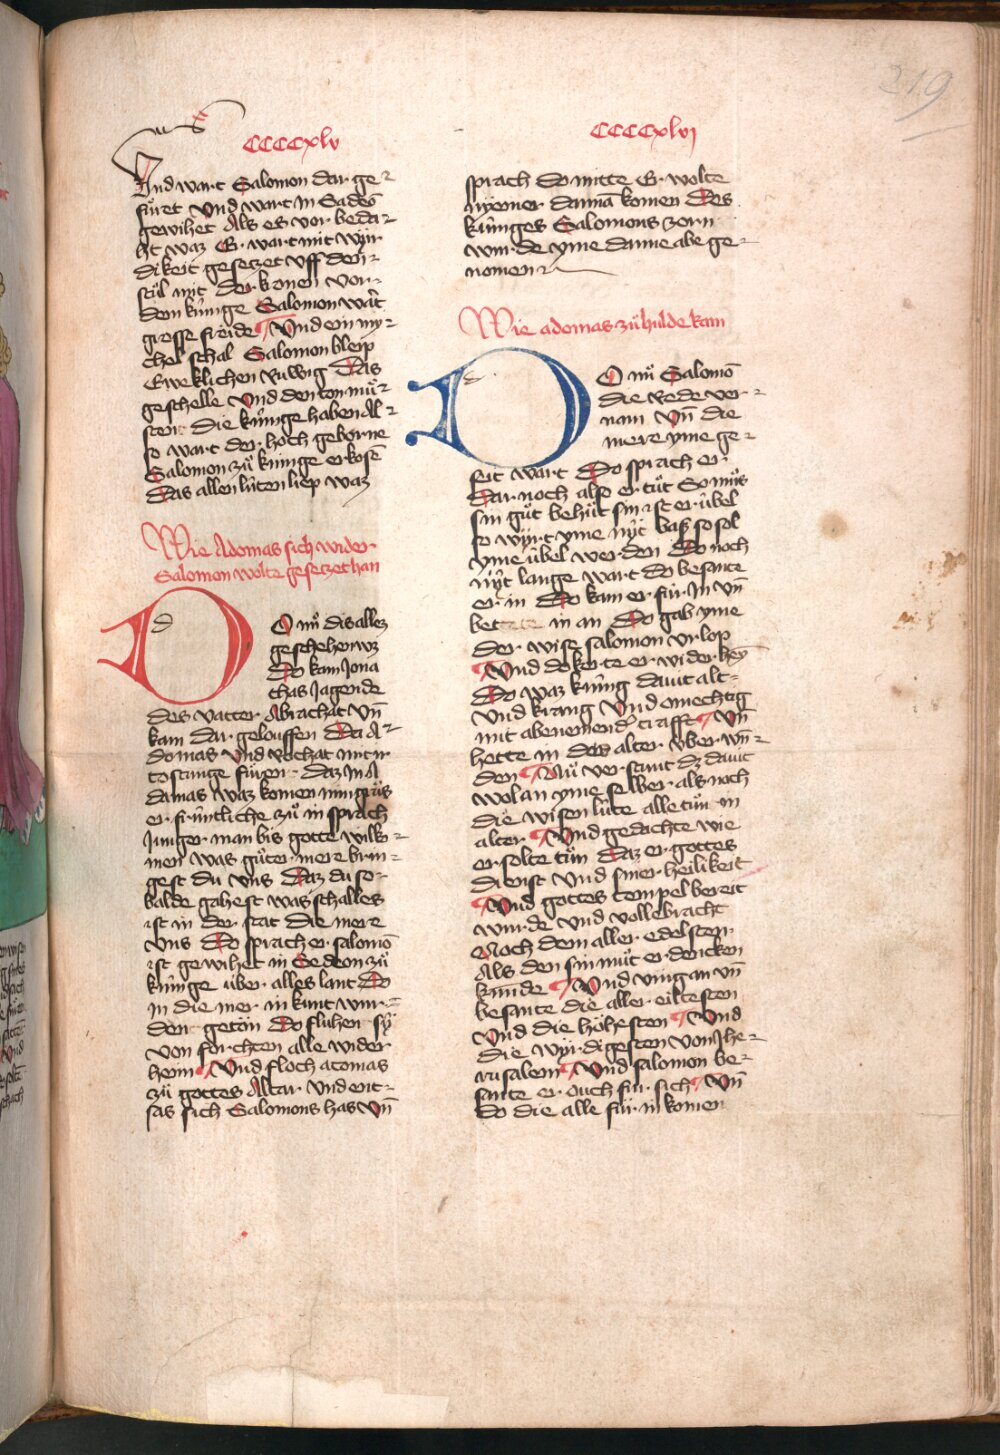 219
CCCCxlv
Und wart Salomon dar ge-
fuͤret Und wart in Gadeō
gewihet Als es vor beda-
ht waz Er wart mit wir
dikeit gesetzet vff den-
stuͤl mit der kronen vor-
dem kúnige Salomon wart
grosse freide Und ein my-
chel schal Salomon bleip
Eweklichen ruwig Das
geschelle Und den ton muͤ-
sten die kúnige haben Al-
so wart der hoch geborne
Salomon zuͦ kúnige erkosē
Das allen lúten liep waz
Wie Adomas sich wider
Salomon wolte gesetzet han
DO nuͦ dis allez
geschehen wz
Do kam Jona
thas Jagende
des vatter Abrachat Vn̄
kam dar geloufen Da A-
domas Und Rochat mit ir
tostunge fuͦren Daz in A
damas waz komen nun gruͦs
er fruͤntliche zuͦ in sprach
Junger man bis gotte wilko-
men was guͤter mere brin-
gest du Uns Daz du so-
balde gahest was schalles
ist in der stat Die mere
Uns Do sprach er salomō
ist gewihet in Gedeon zuͦ
kúnige úber alles lant Do
in die mer in kunt wur-
den geton Do fluhen sy
von forchten alle wider
heim Und floch adomas
zuͦ gottes Altar Und ent-
sas sich Salomons has Vn̄
CCCCxlvj
sprach do mitte Er wolte
nyemer danna komen Des
kúniges Salomons zorn
wurde yme danne abe ge-
nomen
Wie adomas zuͦ hulde kam
DO nuͦ Salomō
die Rede ver-
nam Vn̄ die
mere yme ge-
seit wart Do sprach er
Dar noch also er tuͦt So muͦs
sin guͦt behuͦt sin ist er úbel
so wirt yme nút bas so sol
yme úbel werden Do noch
nút lange wart do besante
er in Do kam er fúr In Vn̄
bette in an Do gab yme
der wise salomon Urlop
Und do kerte er wider hey
Do waz kúnig Dauit alt-
Und krang Und omechtig
mit abenemender crafft Vn̄
hette in daz alter Uber wn-
den Nuͦ verstunt dz dauit
wol an yme selber als noch
die wisen lúte alle tuͦn in
alter Und gedachte wie
er solte tuͦn Daz er gottes
dienst Und siner heilikeit
Und gottes tempel bereit
wurde Und vollebracht
Noch dem aller edelsten
Als den sin muͦt erdencken
kunde Und ving an Vn̄
besante die aller eiltesten
Und die hoͤhesten Und
die wirdigesten Von Jhe-
rusalem Und salomon be-
sante er ouch fúr sich Vn̄
do die alle fúr in komen